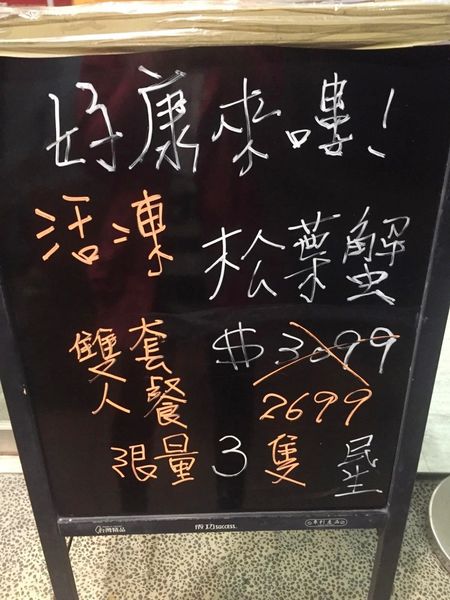 好康來嘍!
活凍 松葉蟹
雙人套餐 $3099
2699
限量3隻 民生
台灣精品 成功 success.